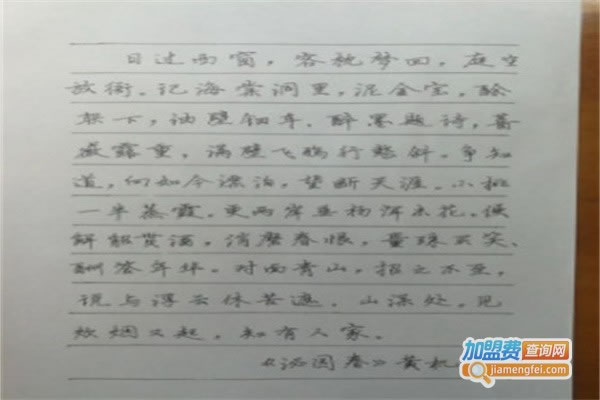 日过西窗，客枕梦回，庭空
放衙。记海棠洞里，泥金宝，酴
架下，油壁钿车。醉墨题诗，蔷
薇露重，满壁飞鸦行整斜。争知
道，何如今漂泊，望断天涯。小桃
一半蒸霞。更两岸垂杨浑未花。便
解貂贳酒，消磨春恨，量珠买笑、
酬答年华。对面青山，招之不至，
说与浮云休苦遮。山深处，见
炊烟又起，知有人家。
《沁园春》黄机
加盟费查询网
jiamengfei.com